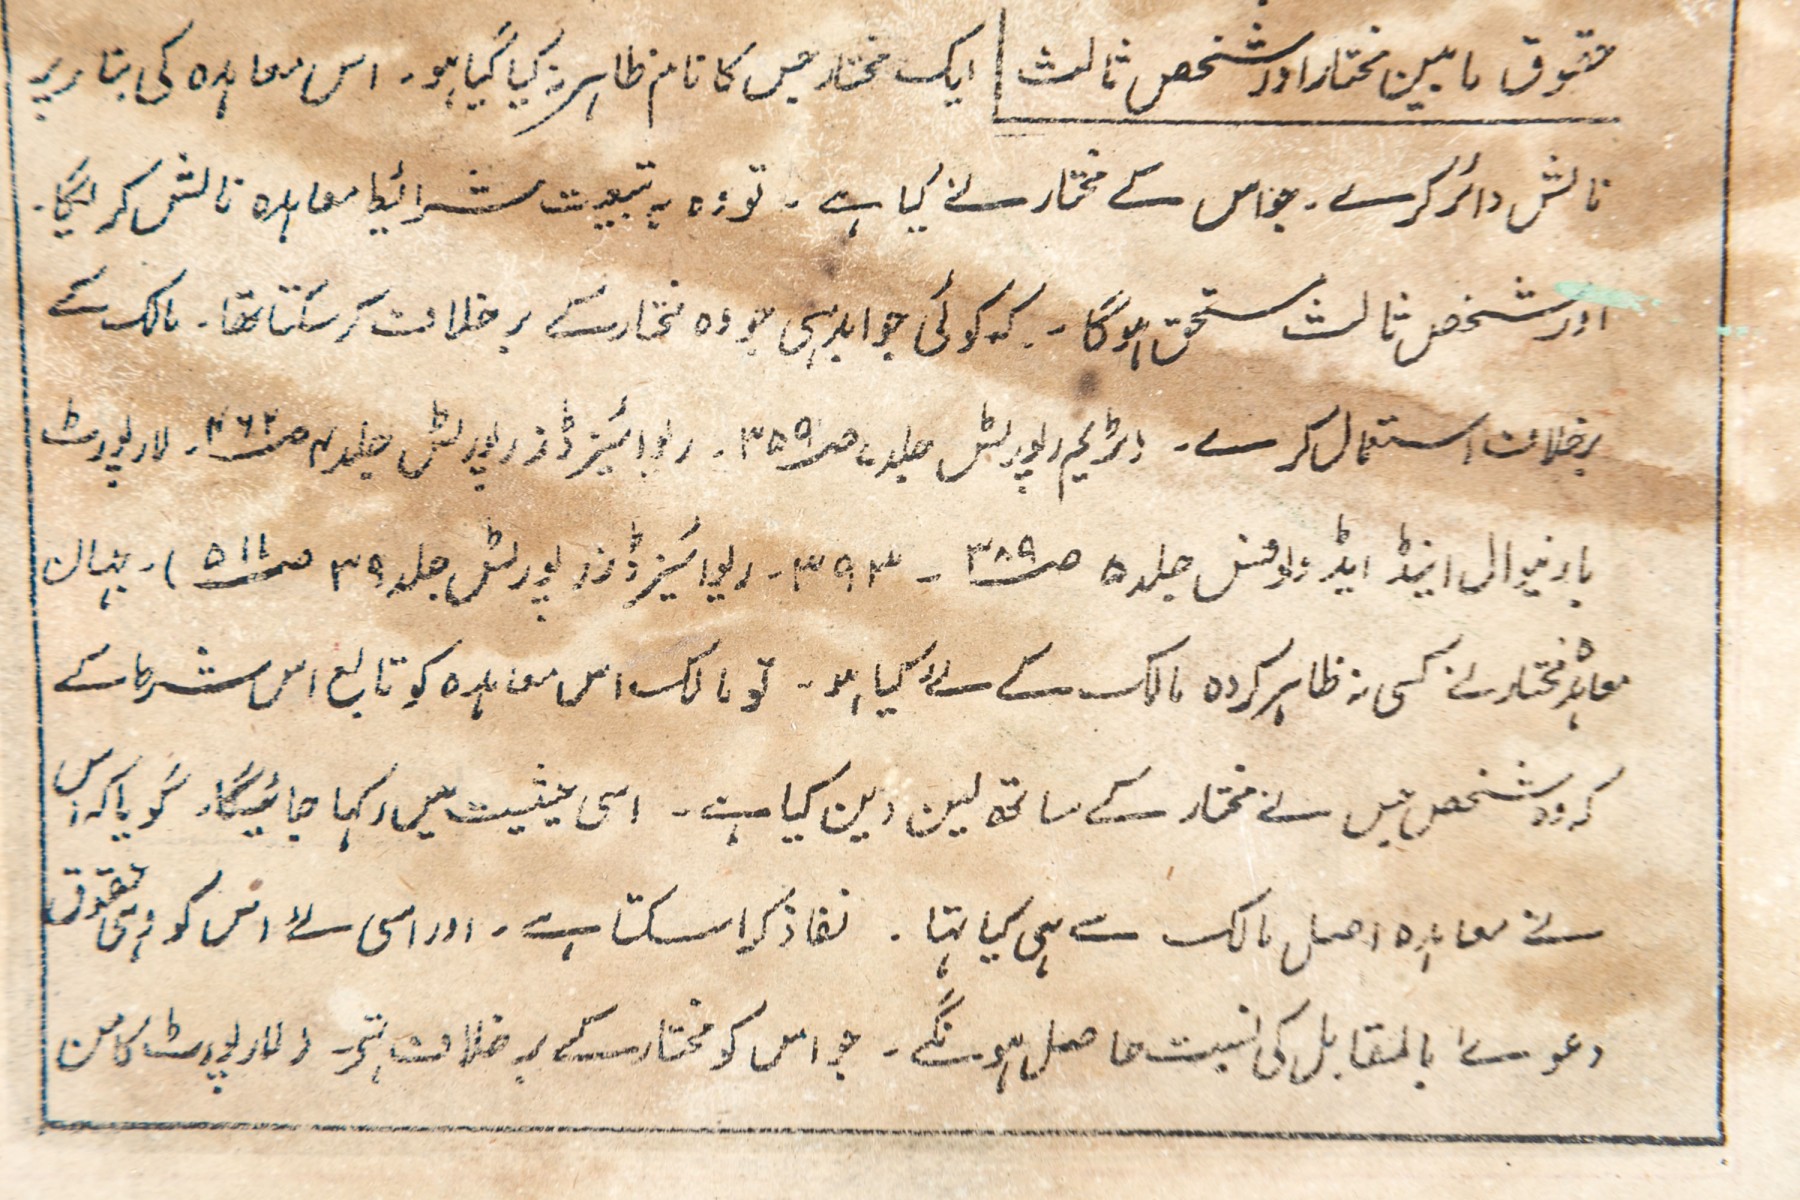 حقوق مابین مختار اور شخص ثالث ایک مختار جس کا نام ظاہر نہ کیا گیا ہو۔ اس معاہدہ کی بنا پر
نالش دائر کرے۔ جو اس کے مختار نے کیا ہے۔ تو وہ بہ تبعیت شرائط معاہدہ نالش کریگا۔
اور شخص ثالث مستحق ہوگا۔ کہ کوئی جوابدہی جو وہ مختار کے برخلاف کرسکتا تھا۔ مالک کے
برخلاف استعمال کرے۔ (ٹریم رپورٹس جلد ۷ صـ ۳۵۹۔ ریوائیزڈ رپورٹس جلد ۴ صـ ۴۶۲۔ لا رپورٹ
بارنیوال اینڈ ایڈولفس جلد ۵ صـ ۳۸۹ ۔ ۳۹۳۔ ریوائیزڈ رپورٹس جلد ۳۹ صـ ۵۱۱)۔ جہاں
معاہدہ مختار نے کسی نہ ظاہر کردہ مالک کے لئے کیا ہو۔ تو مالک اس معاہدہ کو تابع اس شرط کے
کہ وہ شخص جس نے مختار کے ساتھ لین دین کیا ہے۔ اسی حیثیت میں رکھا جائیگا۔ گویا کہ اس
نے معاہدہ اصل مالک سے ہی کیا تہا۔ نفاذ کرا سکتا ہے۔ اور اسی لئے اس کو وہی حقوق
دعوےٰ بالمقابل کی نسبت حاصل ہونگے۔ جو اس کو مختار کے برخلاف تہی۔ (لا رپورٹ کامن